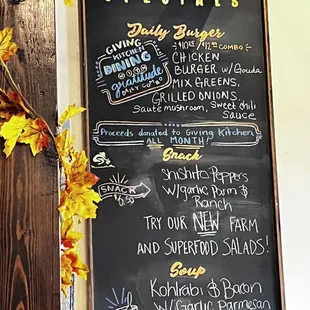 SPECIALS
Daily Burger
GIVING
KITCHEN
DINING
WITH
gratitude
CHICKEN
BURGER w/Gouda
MIX GREENS,
GRILLED ONIONS,
Saute mushroom, Sweet chili
Sauce
Proceeds donated to Giving Kitchen
ALL MONTH!
Snack
SNACK
Shishito Peppers
w/garlic Parm &
Ranch
TRY OUR NEW FARM
AND SUPERFOOD SALADS!
Soup
Kohlrabi & Bacon
w/Garlic Parmesan